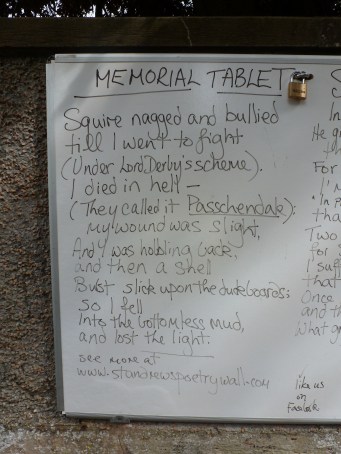 MEMORIAL TABLET
Squire nagged and bullied
till I went to fight
(Under Lord Derby's scheme).
I died in hell –
(They called it Passchendale);
my wound was slight,
And I was hobling back,
and then a shell
Bust slick upon the duckboards:
So I fell
Into the bottomless mud,
and lost the light.
see more at
www.standrewspoetrywall.com
S
In
He g
th
For
I'
"In P
tha
Two
for
I su
that
Once
and th
What gr
like us
on